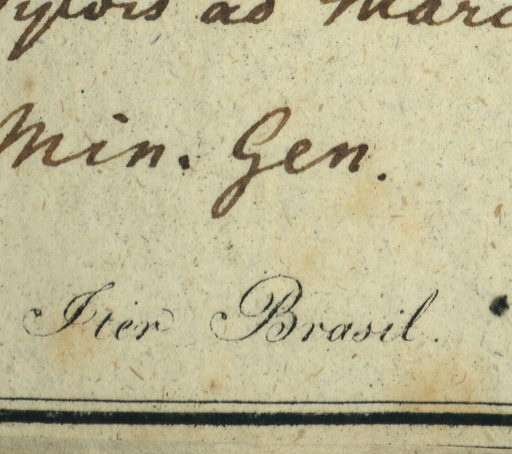 ad Mar
Min. Gen.
Iter Brasil.